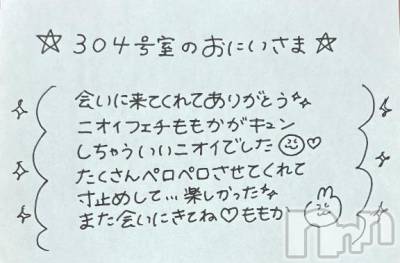 ☆304号室のおにいさま☆
会いに来てくれてありがとう
ニオイフェチももかがキュン
しちゃういいニオイでした♡
たくさんペロペロさせてくれて
寸止めして…楽しかった
また会いにきてね♡ももか